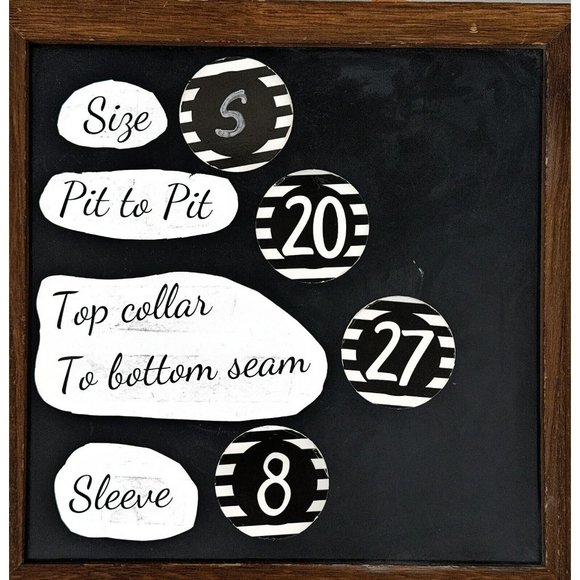 Size S
Pit to Pit 20
Top collar
To bottom seam 27
Sleeve 8